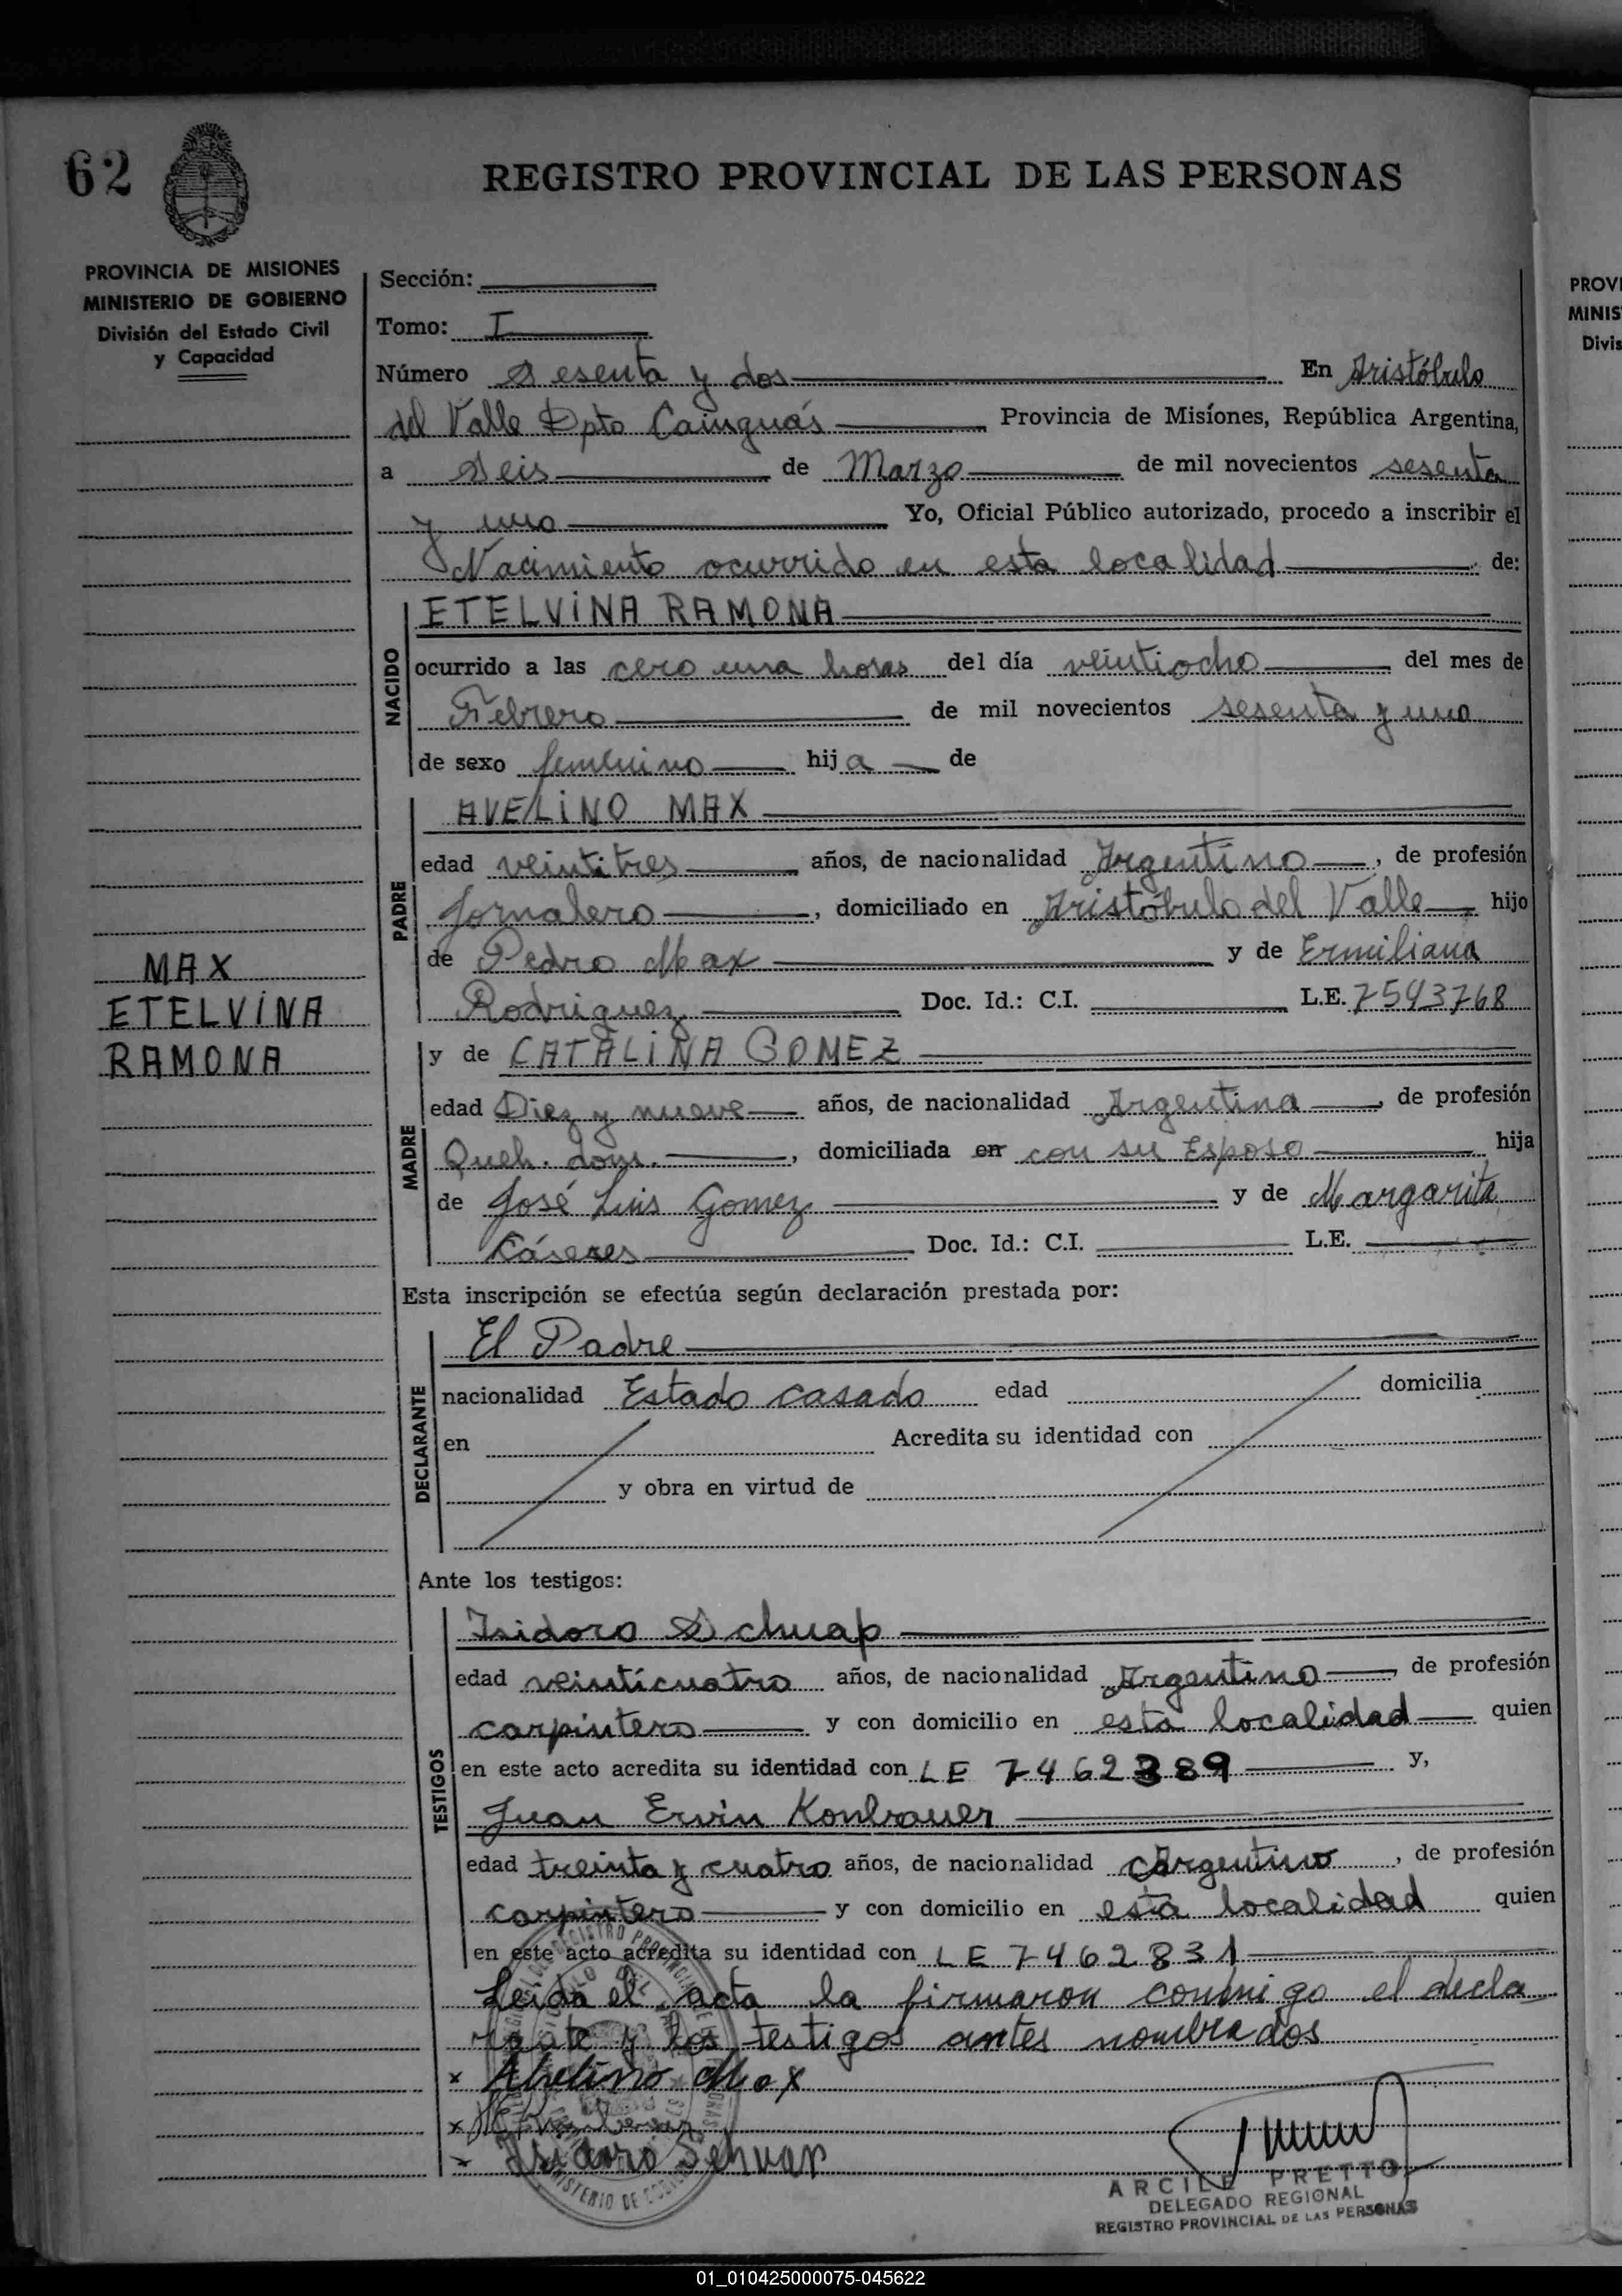 62
REGISTRO PROVINCIAL DE LAS PERSONAS
PROVINCIA DE MISIONES
MINISTERIO DE GOBIERNO
División del Estado Civil
y Capacidad
Sección:
Tomo: I
Número Sesenta y dos En Aristóbulo
del Valle Dpto Cainguás Provincia de Misiones, República Argentina,
a Seis de Marzo de mil novecientos sesenta
y uno Yo, Oficial Público autorizado, procedo a inscribir el
Nacimiento ocurrido en esta localidad de:
NACIDO
ETELVINA RAMONA
ocurrido a las cero una horas del día veintiocho del mes de
Febrero de mil novecientos sesenta y uno
de sexo femenino hija de
PADRE
AVELINO MAX
edad veintitres años, de nacionalidad Argentino, de profesión
Jornalero, domiciliado en Aristóbulo del Valle hijo
de Pedro Max y de Ermiliana
Rodriguez Doc. Id.: C.I. L.E. 7543768
MAX
ETELVINA
RAMONA
MADRE
y de CATALINA GOMEZ
edad Diez y nueve años, de nacionalidad Argentina, de profesión
Queh. dom., domiciliada en con su Esposo hija
de José Luis Gomez y de Margarita
Cáseres Doc. Id.: C.I. L.E.
Esta inscripción se efectúa según declaración prestada por:
DECLARANTE
El Padre
nacionalidad Estado casado edad domicilia
en Acredita su identidad con
y obra en virtud de
Ante los testigos:
TESTIGOS
Isidoro Schuap
edad veinticuatro años, de nacionalidad Argentino, de profesión
carpintero y con domicilio en esta localidad quien
en este acto acredita su identidad con LE 7462389 y,
Juan Ervin Konbrauer
edad treinta y cuatro años, de nacionalidad Argentino, de profesión
carpintero y con domicilio en esta localidad quien
en este acto acredita su identidad con LE 7462831
Leida el acta la firmaron conmigo el decla
rante y los testigos antes nombrados
x Abelino Max
x
x Isidoro Schuap
ARCILE PRETTO
DELEGADO REGIONAL
REGISTRO PROVINCIAL DE LAS PERSONAS
PROVI
MINIS
Divis
01_010425000075-045622